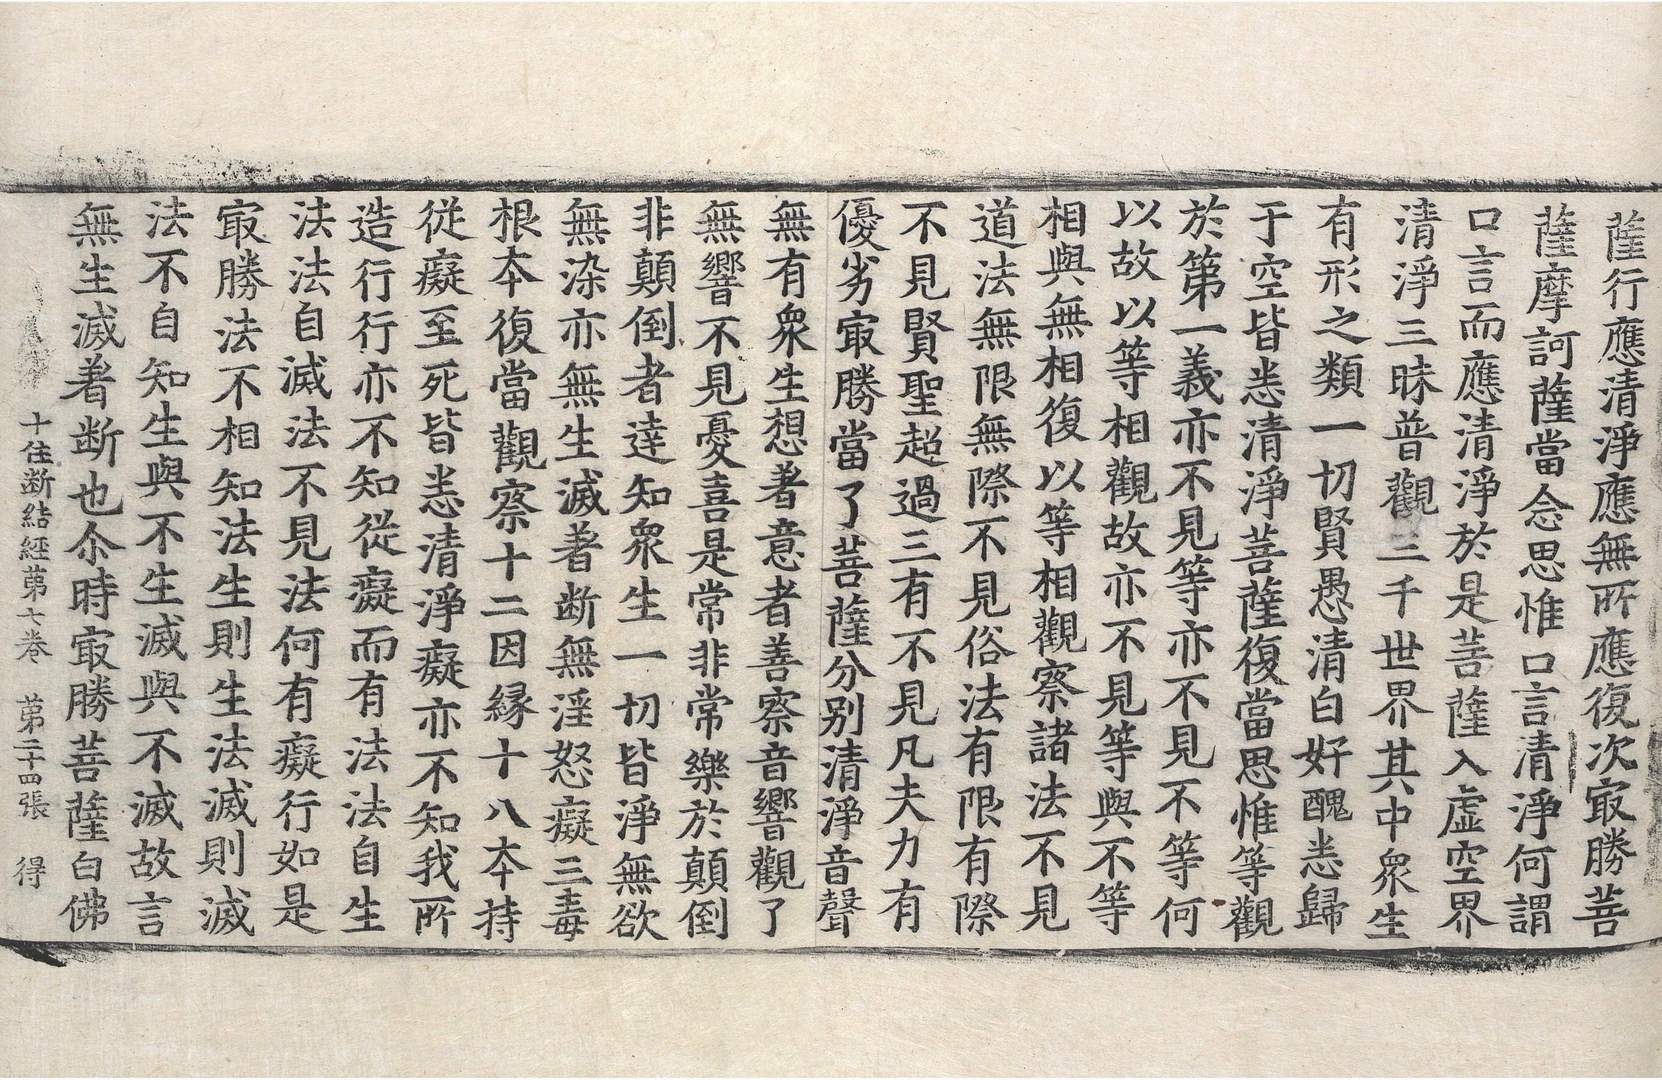 薩行應清淨應無所應復次㝡勝菩
薩摩訶薩當念思惟口言清淨何謂
口言而應清淨於是菩薩入虛空界
清淨三昧普觀三千世界其中衆生
有形之類一切賢愚清白好醜悉歸
于空皆悉清淨菩薩復當思惟等觀
於第一義亦不見等亦不見不等何
以故以等相觀故亦不見等與不等
相與無相復以等相觀察諸法不見
道法無限無際不見俗法有限有際
不見賢聖超過三有不見凡夫力有
優劣㝡勝當了菩薩分別清淨音聲
無有衆生想著意者善察音響觀了
無響不見憂喜是常非常樂於顛倒
非顛倒者達知衆生一切皆淨無欲
無染亦無生滅著断無淫怒癡三毒
根本復當觀察十二因緣十八本持
從癡至死皆悉清淨癡亦不知我所
造行行亦不知從癡而有法法自生
法法自滅法不見法何有癡行如是
㝡勝法不相知法生則生法滅則滅
法不自知生與不生滅與不滅故言
無生滅著断也尒時㝡勝菩薩白佛
十住断結經苐七卷　苐二十四張　得